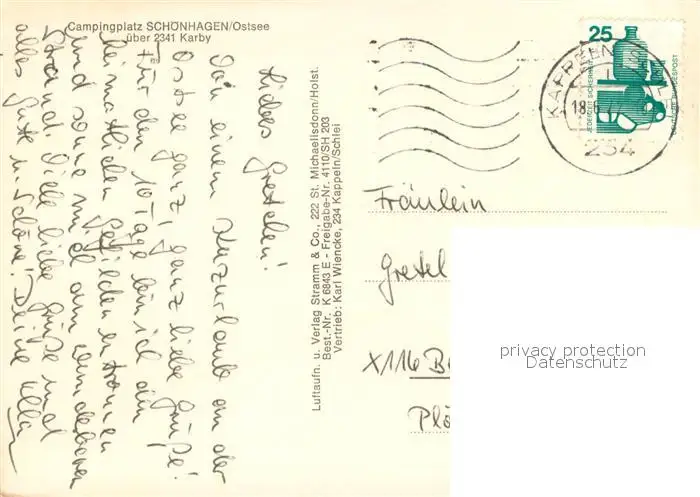 Campingplatz SCHÖNHAGEN/Ostsee
über 2341 Karby
Liebes Gretchen!
Von einem Kurzurlaub an der
Ostsee ganz, ganz liebe Grüße!
Für den 10 Tage bin ich den
heimatlichen Gefilden entronnen
und sonne mich am wunderbaren
Strand. Viele liebe Grüße und
alles Gute u. Schöne! Deine Ulla
Luftaufn. u. Verlag Stramm & Co., 222 St. Michaelisdonn/Holst.
Best.-Nr. K 6843 E - Freigabe-Nr. 4110/SH 203
Vertrieb: Karl Wiencke, 234 Kappeln/Schlei
25
JEDERZEIT SICHERHEIT
DEUTSCHE BUNDESPOST
KAPPELN
18.6
234
Fräulein
Gretel
X116 Be
Plö
privacy protection
Datenschutz